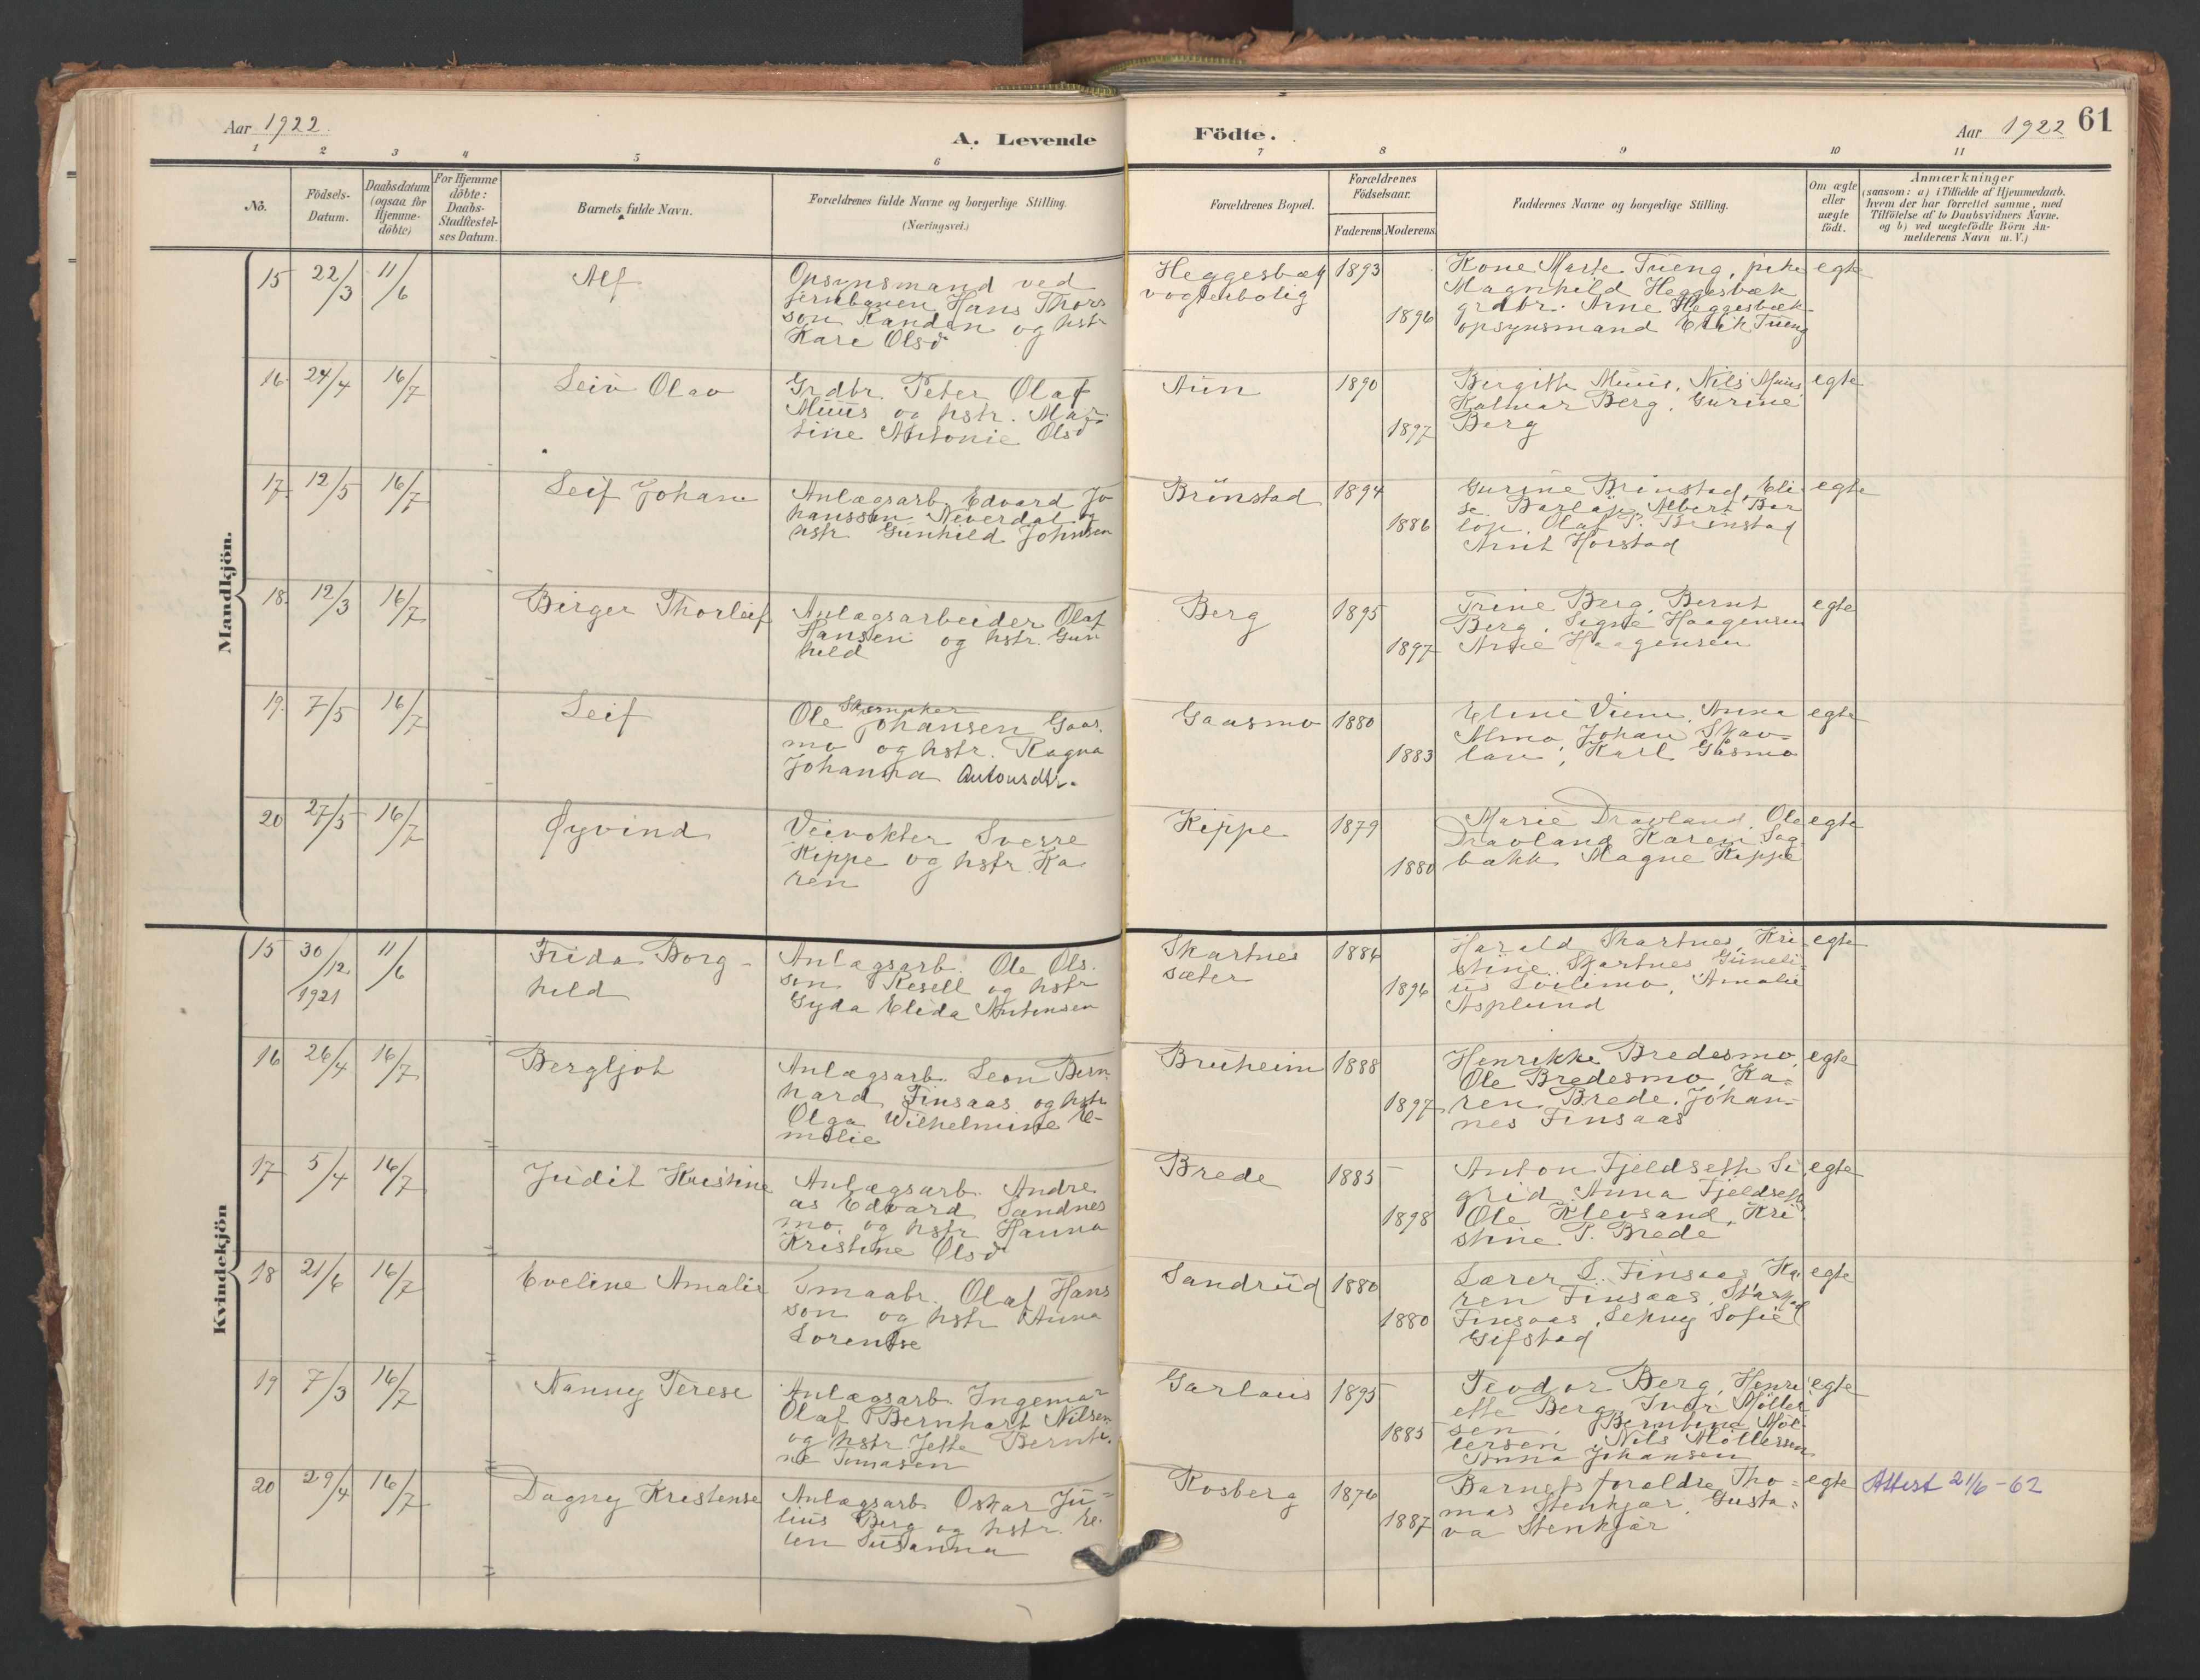 Aar 1922.
A. Levende
Födte.
Aar 1922
61
1 2 3 4 5 6 7 8 9 10 11
No.
Födsels-
Datum.
Daabsdatum
(ogsaa for
Hjemme-
döbte)
For Hjemme
döbte:
Daabs-
Stadfæstel-
ses Datum.
Barnets fulde Navn.
Forældrenes fulde Navne og borgerlige Stilling.
(Næringsvei.)
Forældrenes Bopæl.
Forældrenes
Födselsaar.
Faderens Moderens
Faddernes Navne og borgerlige Stilling.
Om ægte
eller
uægte
födt.
Anmærkninger
(saasom: a) i Tilfælde af Hjemmedaab,
hvem der har forrettet samme, med
Tilföielse af to Daabsvidners Navne.
og b) ved uægtefödte Börn An-
melderens Navn m.V.)
Mandkjön.
15 22/3 11/6
Alf
Opsynsmand ved
jernbanen Hans Thors
son Kandan og hstr
Kari Olsd
Heggesbæk
vogterbolig
1893
1896
Kone Marte Tueng, pike
Magnhild Heggesbæk
grdbr. Arne Heggesbæk
opsynsmand Erik Tueng
egte
16 24/4 16/7
Leiv Olav
Grdbr. Peter Olaf
Muus og hstr. Mar
tine Antonie Olsd
Aun
1890
1897
Birgith Muus, Nils Muus
Halmar Berg, Gurine
Berg
egte
17 12/5 16/7
Leif Johan
Anlægsarb. Edvard Jo
hanssen Neverdal og
hstr Gunhild Johnsen
Brünstad
1894
1886
Gurine Brünstad, Eli
se Barlöp, Albert Bar
löp, Olaf P. Brünstad
Arnt Horstad
egte
18. 12/3 16/7
Birger Thorleif
Anlægsarbeider Olaf
Hansen og hstr. Gun
hild
Berg
1895
1897
Trine Berg, Bernt
Berg, Signe Haagensen
Arne Haagensen
egte
19. 7/5 16/7
Leif
Skomaker
Ole Johansen Gaas
mo og hstr. Ragna
Johanna Antonsdtr.
Gaasmo
1880
1883
Eline Viem, Anna
Almo, Johan Skav-
lan, Karl Gåsmo
egte
20 27/5 16/7
Øyvind
Veivokter Sverre
Kippe og hstr. Ka
ren
Kippe
1879
1880
Marie Dravland, Ole
Dravland, Karen Sag
bakk, Magne Kippe
egte
Kvindekjön
15 30/12 1921 11/6
Frida Borg-
hild
Anlægsarb. Ole Ols.
son Kesell og hstr
Gyda Elida Antonsen
Skartnes
sæter
1886
1896
Harald Skartnes, Kri
stine Skartnes
Amalie
Asplund
egte
16 26/4 16/7
Bergljot
Anlægsarb. Leon Bern
hard Finsaas og hstr
Olga Wilhelmine E-
milie
Bruheim
1888
1897
Henrikke Bredesmo,
Ole Bredesmo, Ka-
ren Brede, Johan-
nes Finsaas
egte
17 5/4 16/7
Judit Kristine
Anlægsarb. Andre
as Edvard Sandnes
mo og hstr Hanna
Kristine Olsd
Brede
1885
1898
Anton Fjeldseth Si
grid Anna Fjeldseth
Ole Klevsand, Kri
stine P. Brede
egte
18 21/6 16/7
Eveline Amalie
Smaabr. Olaf Hans
son og hstr Anna
Lorentse
Sandrud
1880
1880
Lærer L. Finsaas, Ka
ren Finsaas,
Finsaas, Sofie
Gifstad
egte
19 7/3 16/7
Nanny Terese
Anlægsarb. Ingemar
Olaf Bernhart Nilsen
og hstr. Jette Bernti.
ne Tomasen
Garlaus
1895
1885
Teodor Berg, Henri
ette Berg, Ivar Möller
sen, Berntine Möl
lersen, Nils Möllersen
Anna Johansen
egte
20 29/4 16/7
Dagny Kristense
Anlægsarb. Oskar Ju-
lius Berg og hstr. El.
len Susanna
Rosberg
1876
1887
Barnets foraldre, Tho-
mas Stenkjær, Gusta-
va Stenkjær
egte
Attest 21/6-62